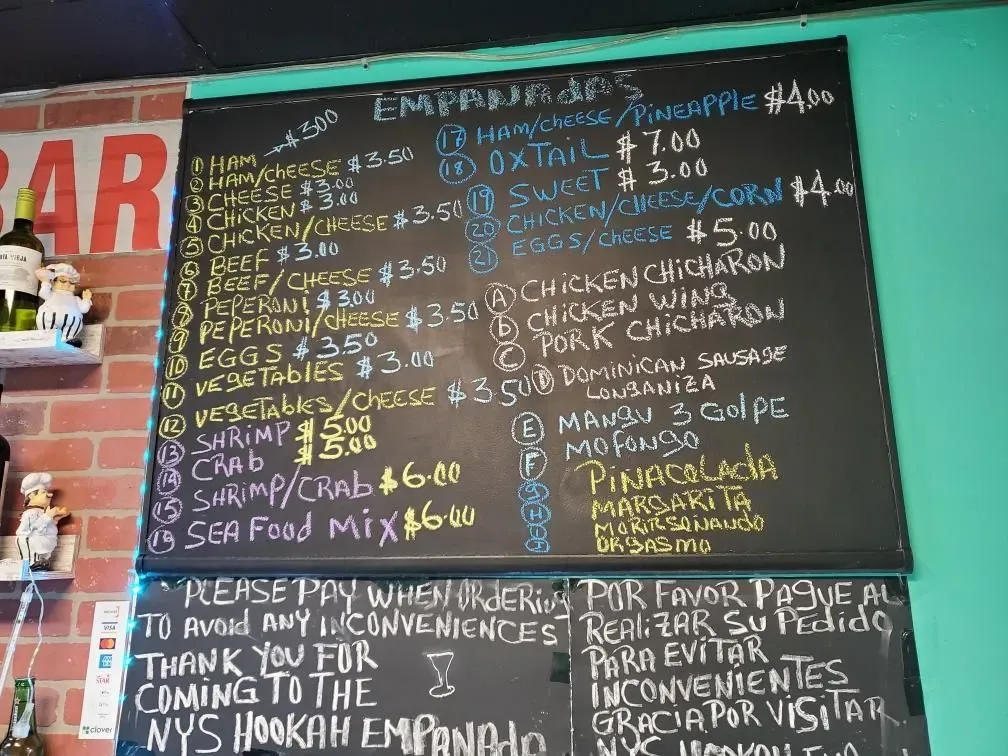 BAR
EMPANAdAS
$3.00
① HAM
② HAM/cHEESE $3.50
③ CHEESE $3.00
④ CHICKEN $3.00
⑤ CHICKEN/CHEESE $3.50
⑥ BEEF $3.00
⑦ BEEF/CHEESE $3.50
⑧ PEPERONi $3.00
⑨ PEPERONI/CHEESE $3.50
⑩ EGGS $3.50
⑪ VEgETABLES $3.00
⑫ VEgETAbLES/CHEESE $3.50
⑬ SHRIMP $5.00
⑭ CRAb $5.00
⑮ SHRIMP/CRAb $6.00
⑯ SEA Food MiX $6.00
⑰ HAM/cHEESE/PiNEAPPLE $4.00
⑱ OXTAIL $7.00
⑲ SWEET $3.00
⑳ CHICKEN/CHEESE/CORN $4.00
㉑ EGGS/cHEESE $5.00
Ⓐ CHiCKEN CHiCHARON
ⓑ CHiCKEN WiNg
Ⓒ PORK CHiCHARON
Ⓓ DOMINICAN SAUSAgE
LONgANiZA
Ⓔ MANgU 3 GOLPE
Ⓕ MOFONgO
ⓖ PiNACOLAdA
Ⓗ MARgARiTA
Ⓘ MORIRSONANdO
ORgASMO
PLEASE PAY WHEN ORdERiNg
TO AVoid ANY INCONVENiENCES
THANK YOU FOR
COMiNG TO THE
NYS HOOKAH EMPANAdA
POR FAVOR PAgUE AL
REALiZAR SU PEdidO
PARA EViTAR
INCONVENiENTES
GRACiA POR ViSiTAR
NYS HOOKAH
VISA
clover